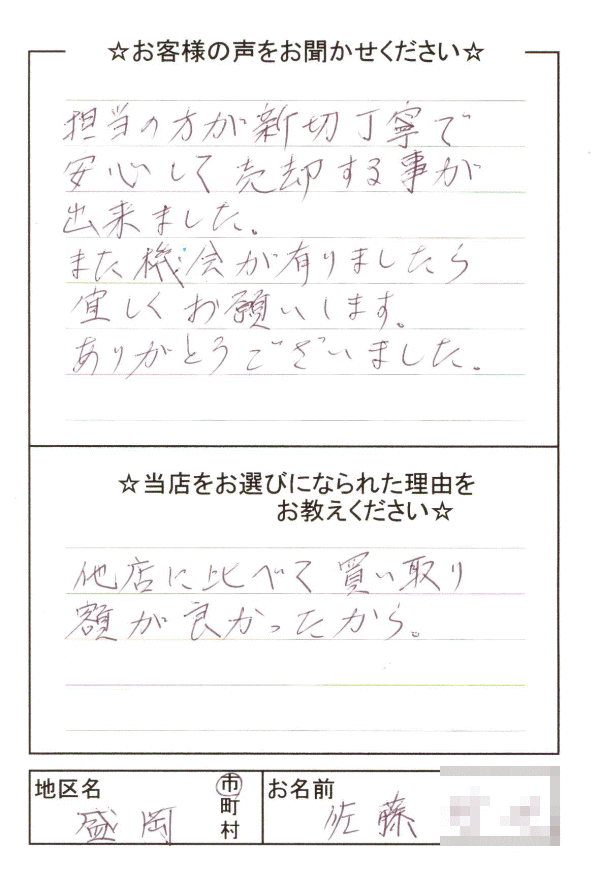 ☆お客様の声をお聞かせください☆
担当の方が新切丁寧で
安心して売却する事が
出来ました。
また機会が有りましたら
宜しくお願いします。
ありがとうございました。
☆当店をお選びになられた理由を
お教えください☆
他店に比べて買い取り
額が良かったから。
地区名 盛岡 市町村
お名前 佐藤